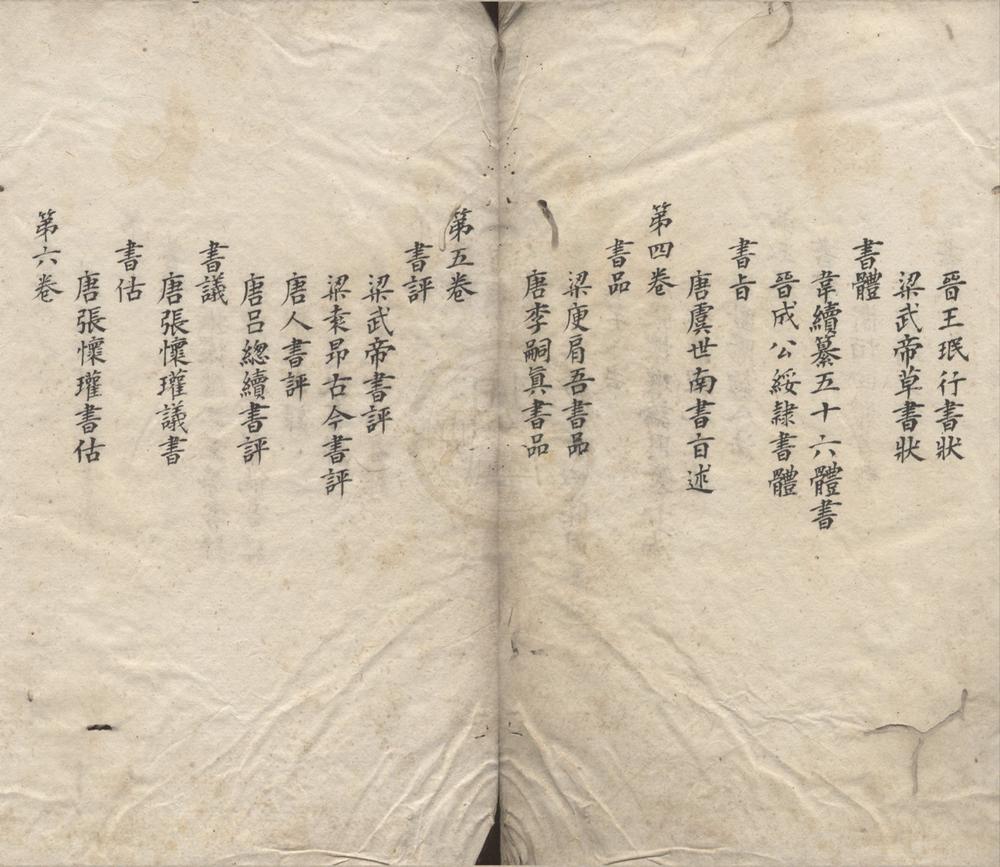 晉王珉行書狀
梁武帝草書狀
書體
韋續纂五十六體書
晉成公綏隷書體
書旨
唐虞世南書旨述
第四卷
書品
梁庾肩吾書品
唐李嗣眞書品
第五卷
書評
梁武帝書評
梁袁昂古今書評
唐人書評
唐呂總續書評
書議
唐張懷瓘議書
書估
唐張懷瓘書估
第六卷